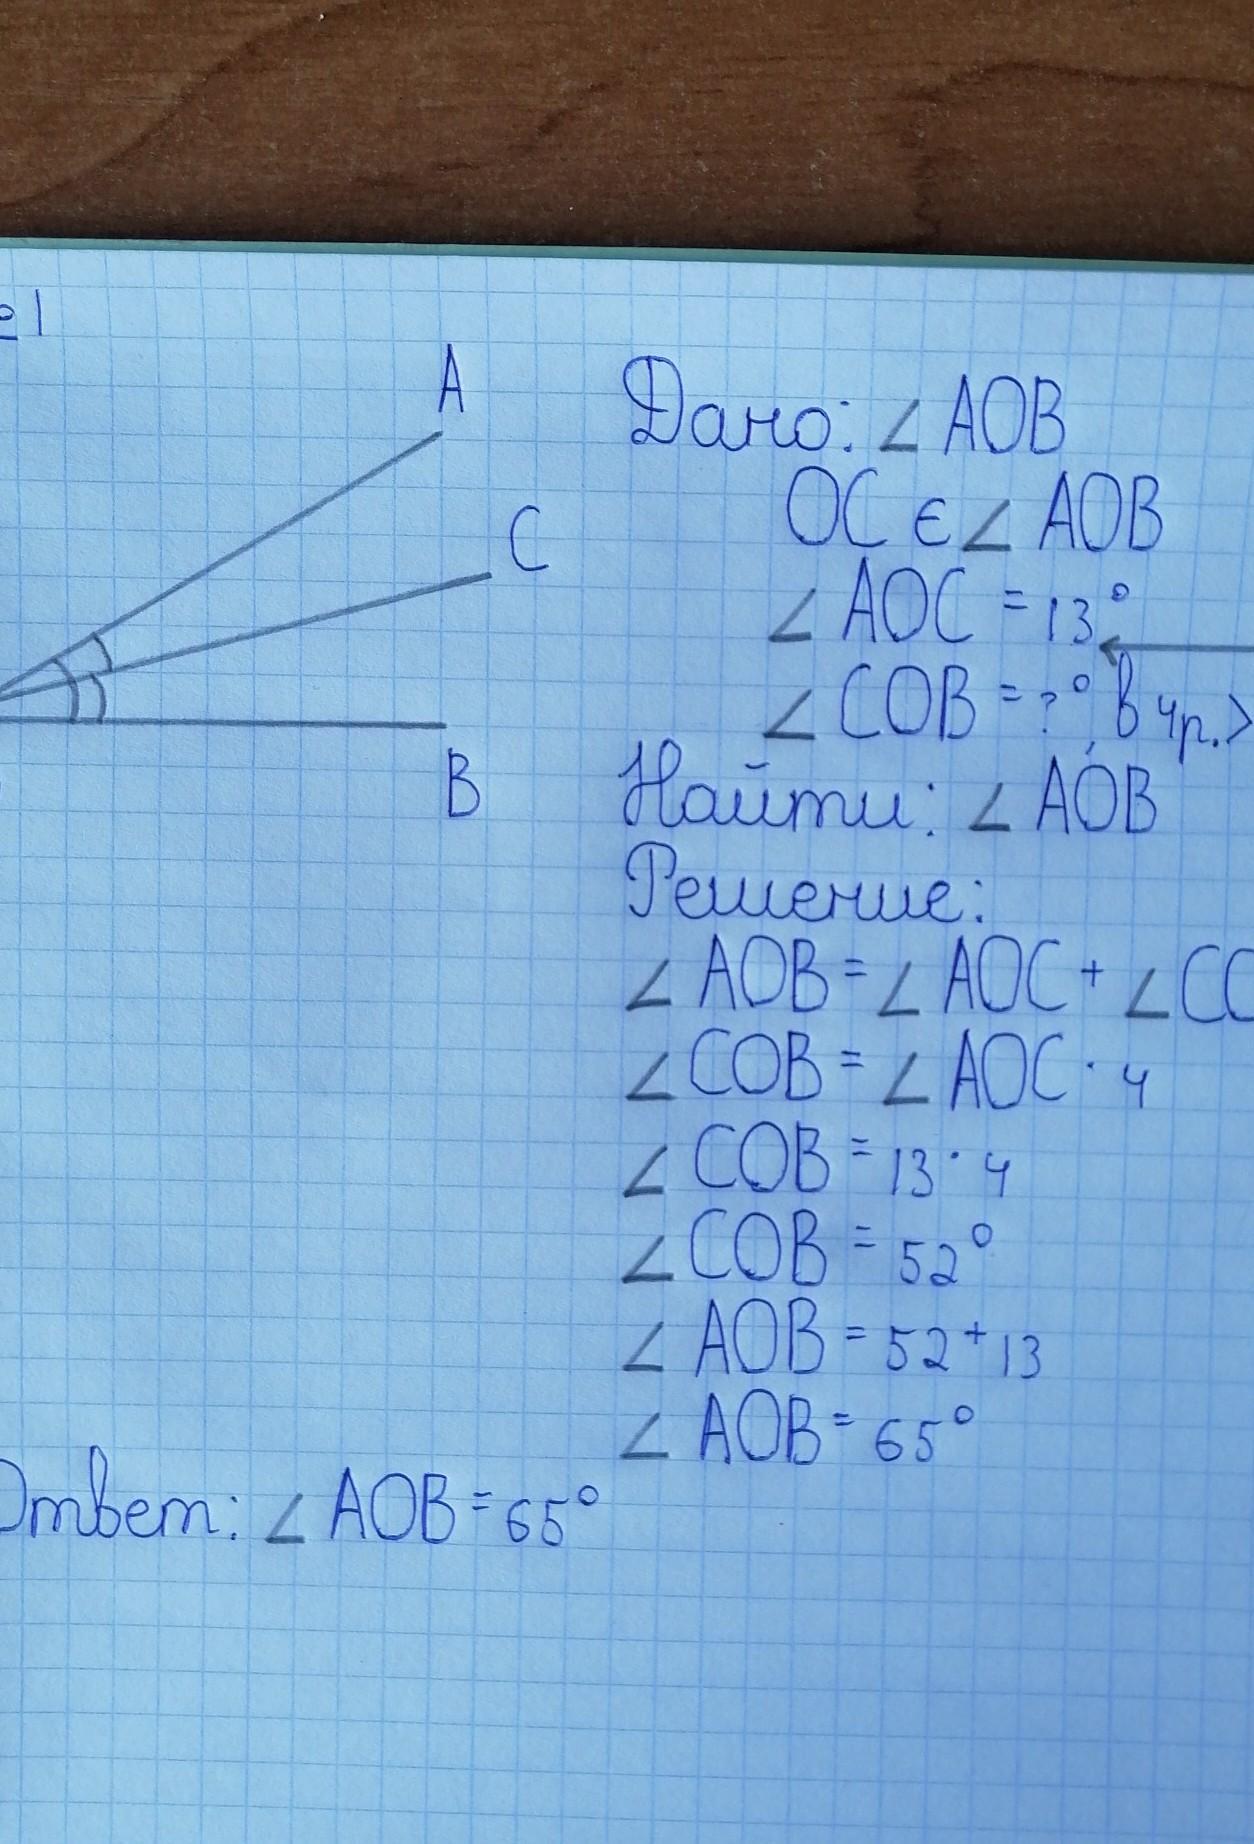 №1
A
C
B
Дано: ∠AOB
OC ∈ ∠AOB
∠AOC = 13°
∠COB = ?°, в 4р. >
Найти: ∠AOB
Решение:
∠AOB = ∠AOC + ∠CO
∠COB = ∠AOC · 4
∠COB = 13 · 4
∠COB = 52°
∠AOB = 52 + 13
∠AOB = 65°
Ответ: ∠AOB = 65°